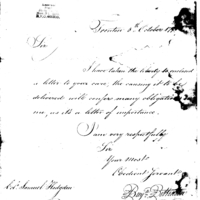 Trenton 5th October 179
Sir
I have taken the liberty to enclose
a letter to your care, the causing it to be
delivered will confer many obligations
on me, as its a letter of importance.
I am very respectfully
Sir
Your Most
Obedient Servant
Col. Samuel Hodgdon
Benj.